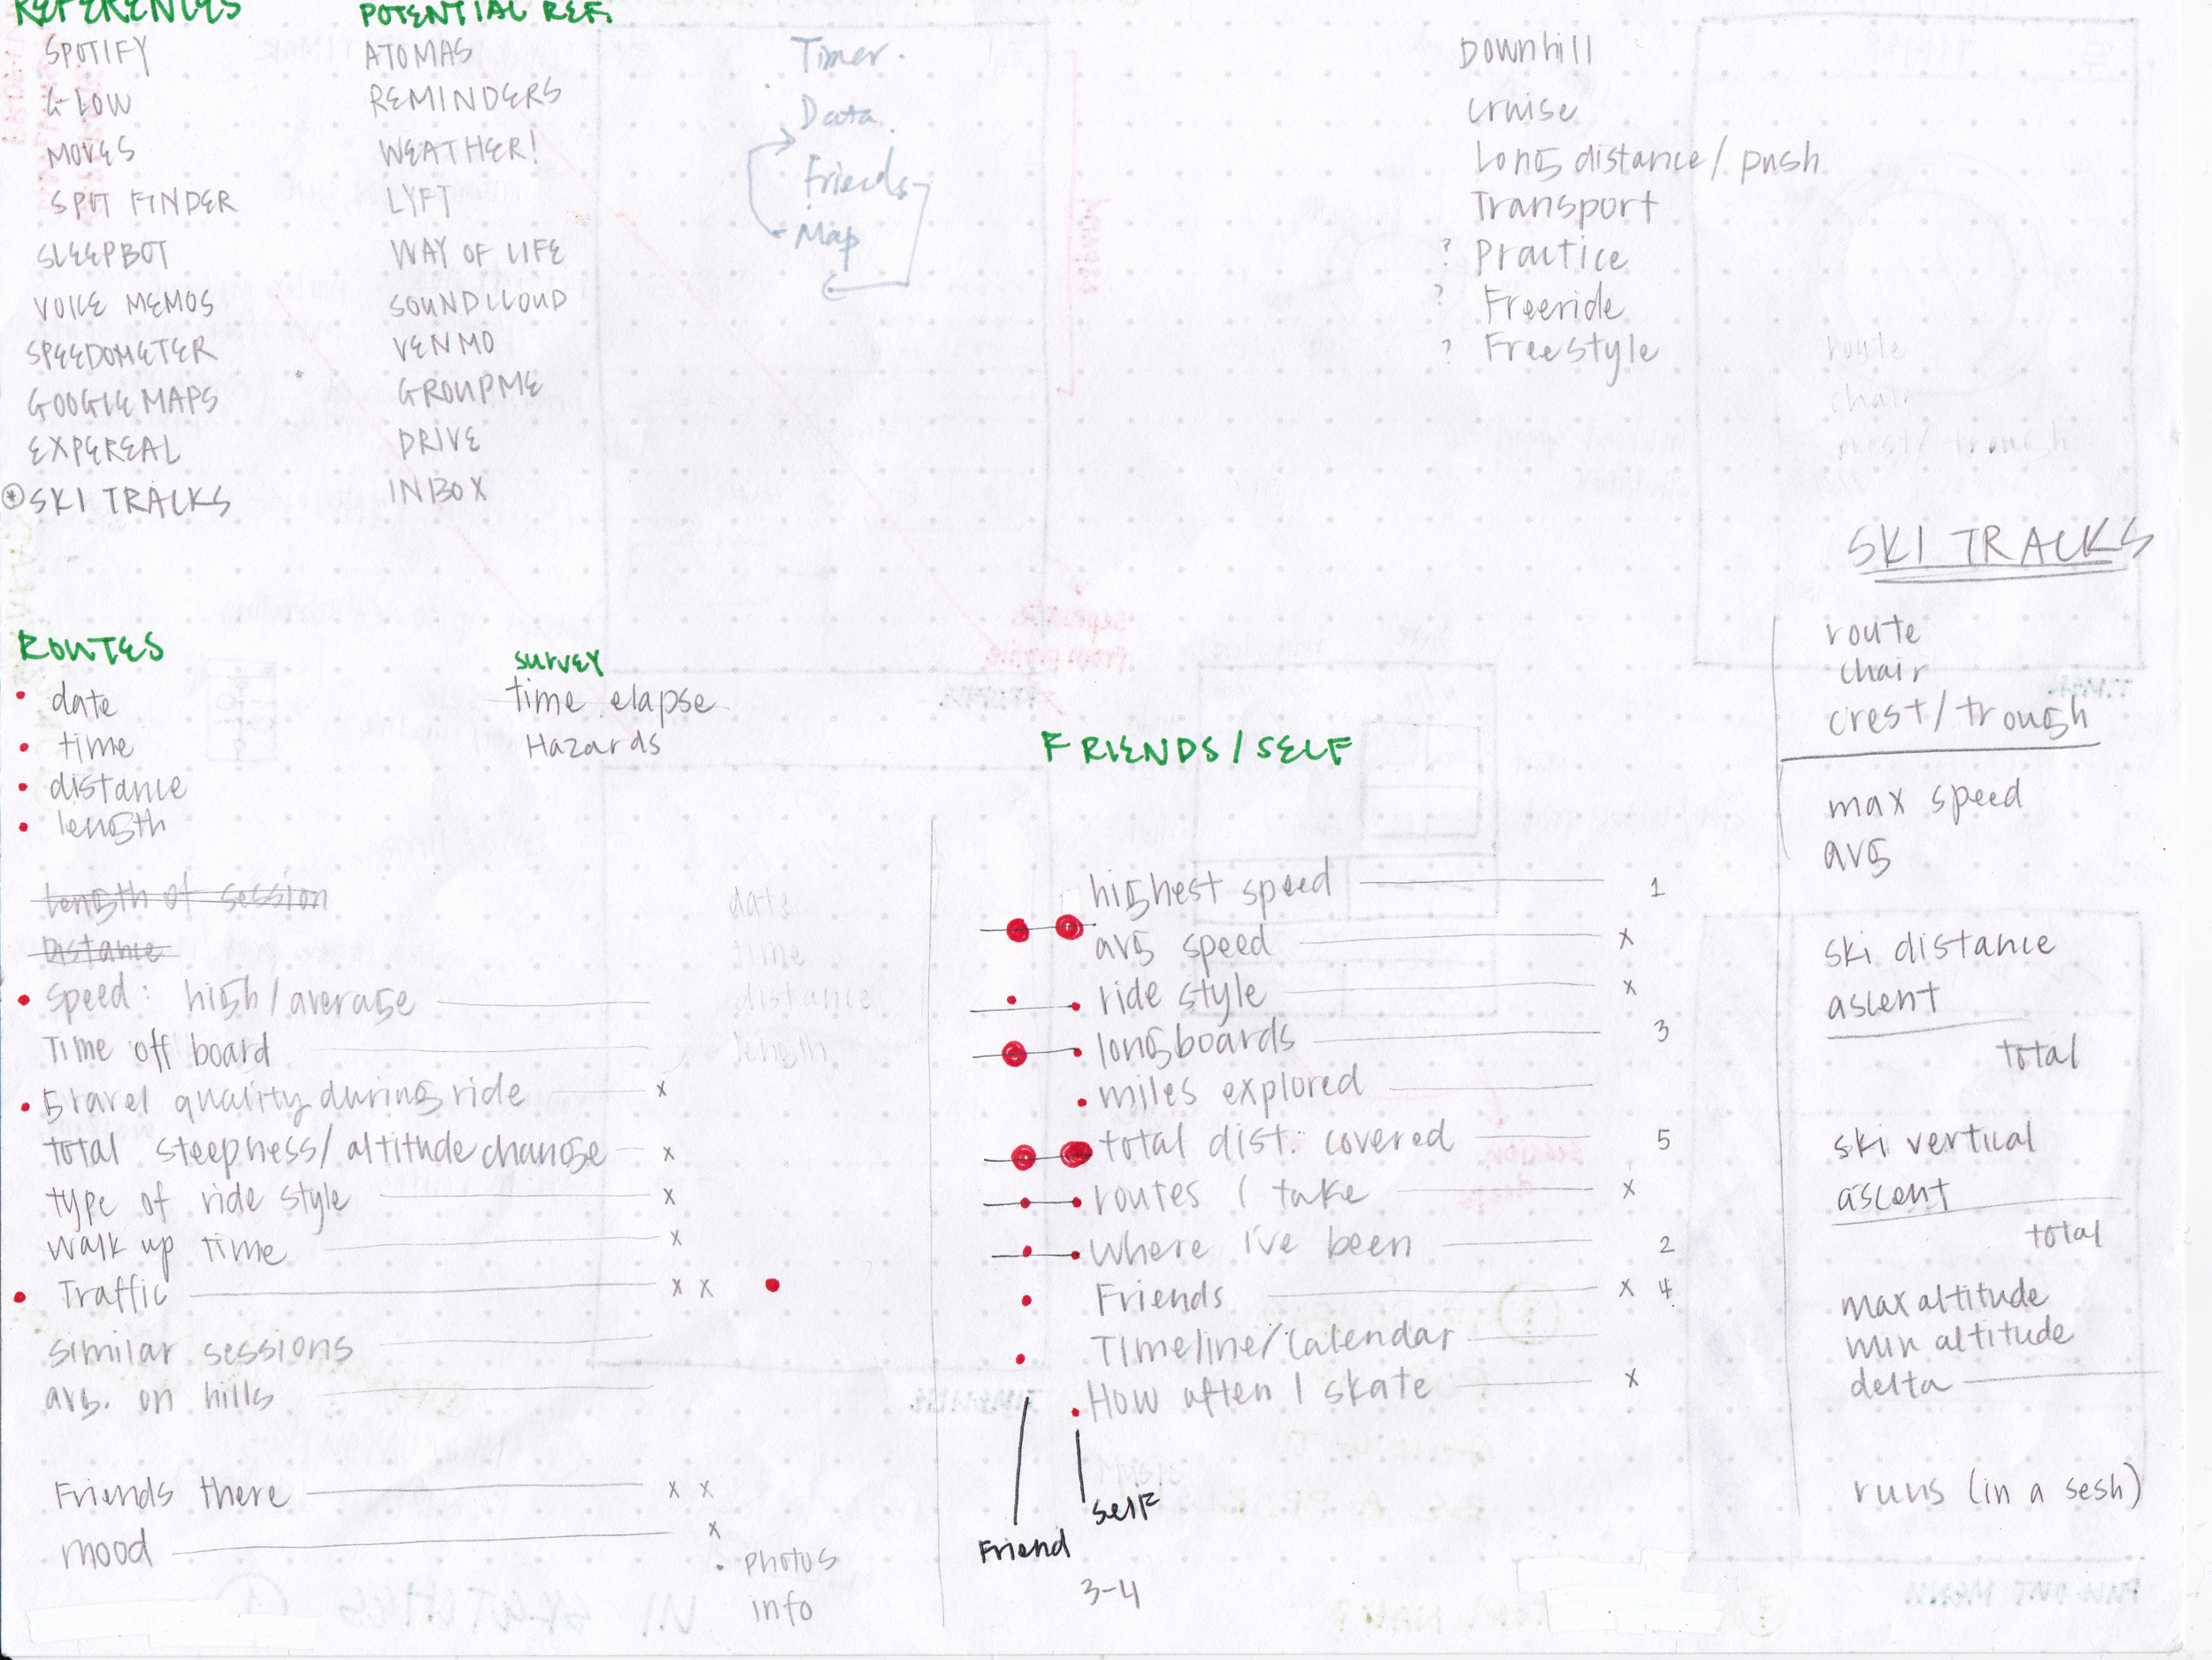 REFERENCES
SPOTIFY
GLOW
MOVES
SPOT FINDER
SLEEPBOT
VOICE MEMOS
SPEEDOMETER
GOOGLE MAPS
EXPEREAL
* SKI TRACKS
POTENTIAL REF.
ATOMAS
REMINDERS
WEATHER!
LYFT
WAY OF LIFE
SOUNDCLOUD
VENMO
GROUPME
DRIVE
INBOX
Timer.
Data
Friends
Map
Downhill
cruise
Long distance / push
Transport
? Practice
? Freeride
? Freestyle
route
chair
crest / trough
ROUTES
date
time
distance
length
length of session
Distance
speed: high / average
Time off board
gravel quality during ride x
total steepness / altitude change x
type of ride style x
walk up time x
Traffic x x
similar sessions
avg. on hills
Friends there x x
mood x
photos
info
survey
time elapse
Hazards
date
time
distance
length
FRIENDS / SELF
highest speed 1
avg speed x
ride style x
longboards 3
miles explored
total dist. covered 5
routes I take x
where i've been 2
Friends x 4
Timeline / calendar
How often I skate x
self
Friend
3-4
SKI TRACKS
route
chair
crest / trough
max speed
avg
ski distance
ascent
total
ski vertical
ascent
total
max altitude
min altitude
delta
runs (in a sesh)